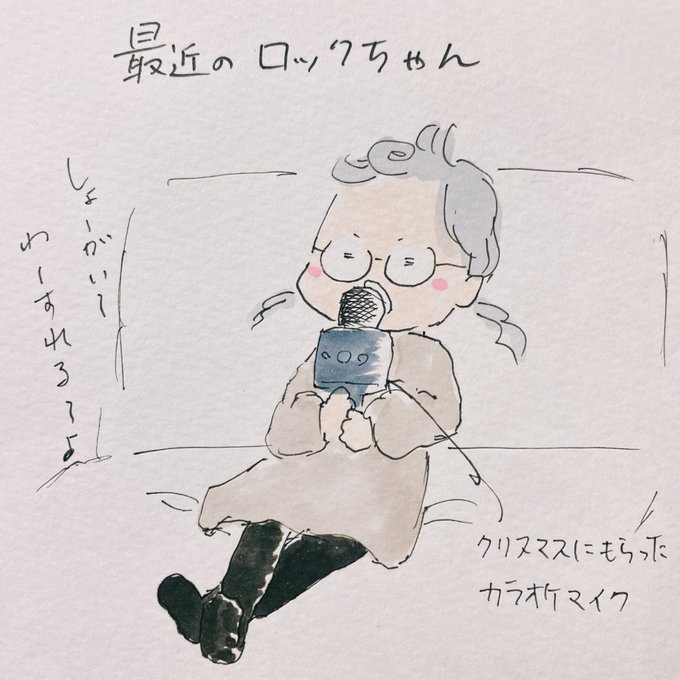 最近のロックちゃん
しょーがいて
わーすれるてよ
クリスマスにもらった
カラオケマイク